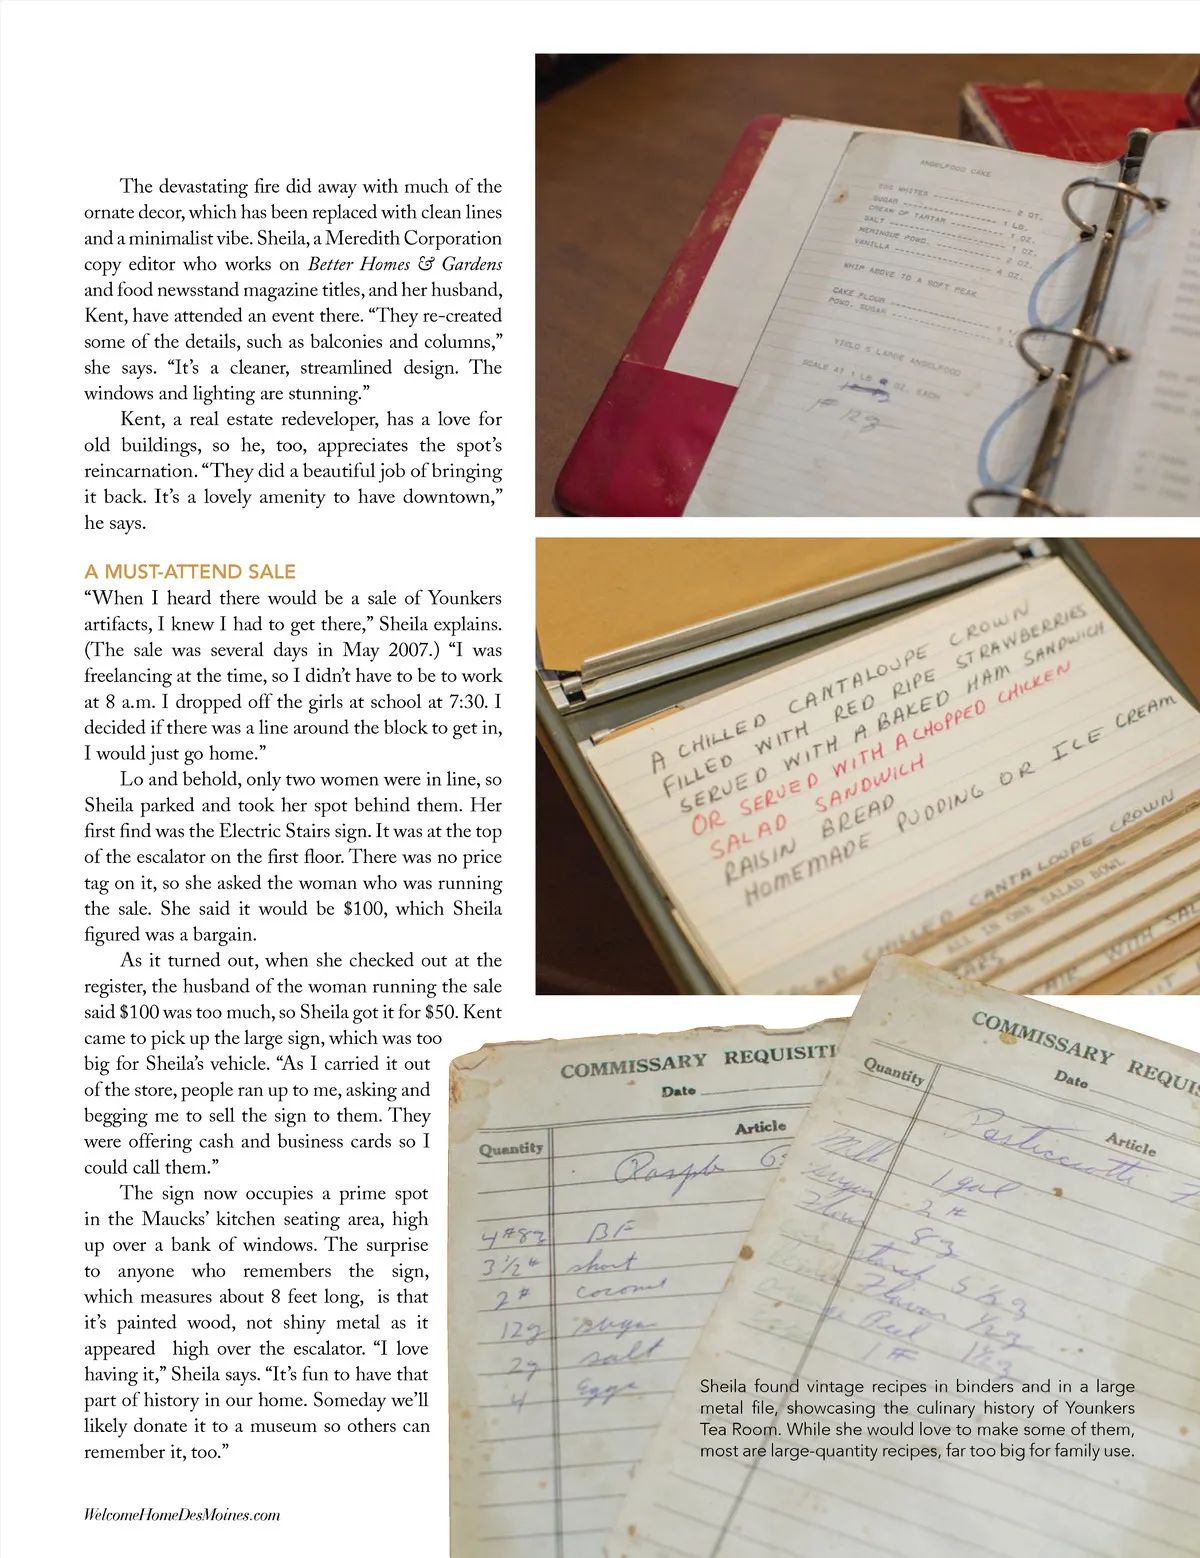 The devastating fire did away with much of the
ornate decor, which has been replaced with clean lines
and a minimalist vibe. Sheila, a Meredith Corporation
copy editor who works on Better Homes & Gardens
and food newsstand magazine titles, and her husband,
Kent, have attended an event there. “They re-created
some of the details, such as balconies and columns,”
she says. “It’s a cleaner, streamlined design. The
windows and lighting are stunning.”
Kent, a real estate redeveloper, has a love for
old buildings, so he, too, appreciates the spot’s
reincarnation. “They did a beautiful job of bringing
it back. It’s a lovely amenity to have downtown,”
he says.
A MUST-ATTEND SALE
“When I heard there would be a sale of Younkers
artifacts, I knew I had to get there,” Sheila explains.
(The sale was several days in May 2007.) “I was
freelancing at the time, so I didn’t have to be to work
at 8 a.m. I dropped off the girls at school at 7:30. I
decided if there was a line around the block to get in,
I would just go home.”
Lo and behold, only two women were in line, so
Sheila parked and took her spot behind them. Her
first find was the Electric Stairs sign. It was at the top
of the escalator on the first floor. There was no price
tag on it, so she asked the woman who was running
the sale. She said it would be $100, which Sheila
figured was a bargain.
As it turned out, when she checked out at the
register, the husband of the woman running the sale
said $100 was too much, so Sheila got it for $50. Kent
came to pick up the large sign, which was too
big for Sheila’s vehicle. “As I carried it out
of the store, people ran up to me, asking and
begging me to sell the sign to them. They
were offering cash and business cards so I
could call them.”
The sign now occupies a prime spot
in the Maucks’ kitchen seating area, high
up over a bank of windows. The surprise
to anyone who remembers the sign,
which measures about 8 feet long, is that
it’s painted wood, not shiny metal as it
appeared high over the escalator. “I love
having it,” Sheila says. “It’s fun to have that
part of history in our home. Someday we’ll
likely donate it to a museum so others can
remember it, too.”
WelcomeHomeDesMoines.com
ANGELFOOD CAKE
EGG WHITES 2 QT.
SUGAR 1 LB.
CREAM OF TARTAR 1 OZ.
SALT 1 OZ.
MERINGUE POWD. 2 OZ.
VANILLA 4 OZ.
WHIP ABOVE TO A SOFT PEAK
CAKE FLOUR
POWD. SUGAR
YIELD 5 LARGE ANGELFOOD
SCALE AT 1 LB OZ. EACH
A CHILLED CANTALOUPE CROWN
FILLED WITH RED RIPE STRAWBERRIES
SERVED WITH A BAKED HAM SANDWICH
OR SERVED WITH A CHOPPED CHICKEN
SALAD SANDWICH
RAISIN BREAD
HOMEMADE PUDDING OR ICE CREAM
CHILLED CANTALOUPE CROWN
ALL IN ONE SALAD BOWL
COMMISSARY REQUISITI
Date
Quantity Article
BF
3 1/2 # short
2 # coconut
12 sugar
salt
4 Eggs
COMMISSARY REQUIS
Date
Quantity Article
Milk 1 gal
Sugar 2 #
Flour
Sheila found vintage recipes in binders and in a large
metal file, showcasing the culinary history of Younkers
Tea Room. While she would love to make some of them,
most are large-quantity recipes, far too big for family use.